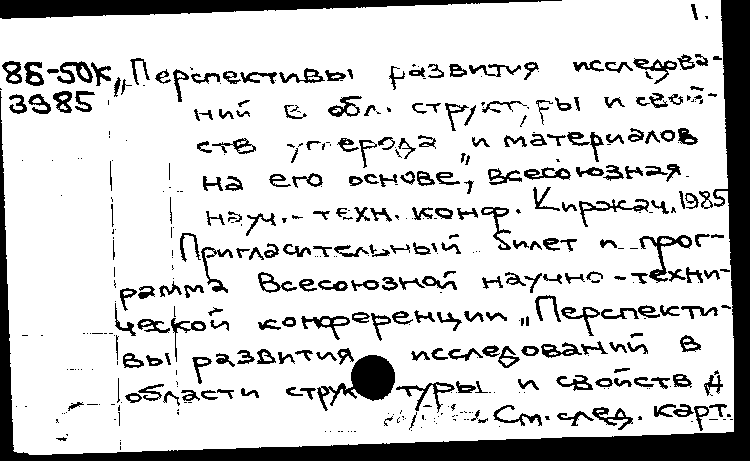 1.
86-50К „Перспективы развития исследова-
3985 ний в обл. структуры и свой-
ств углерода и материалов
на его основе", всесоюзная
науч.-техн. конф. Киржач. 1985
Пригласительный билет и прог-
рамма Всесоюзной научно-техни-
ческой конференции „Перспекти-
вы развития исследований в
области структуры и свойств
См. след. карт.